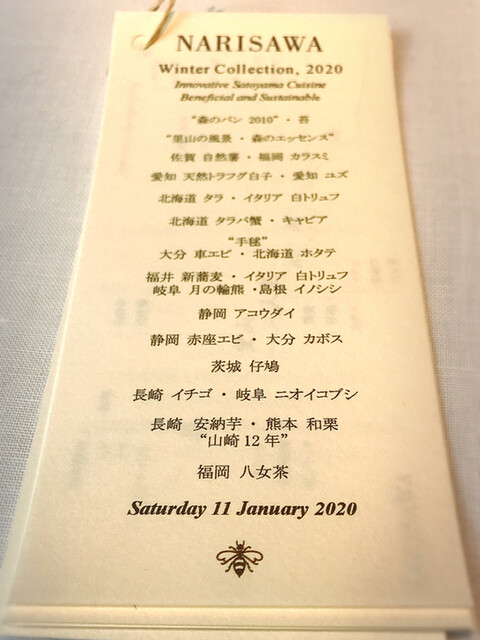 NARISAWA
Winter Collection, 2020
Innovative Satoyama Cuisine
Beneficial and Sustainable
“森のパン 2010”・苔
“里山の風景・森のエッセンス”
佐賀 自然薯・福岡 カラスミ
愛知 天然トラフグ白子・愛知 ユズ
北海道 タラ・イタリア 白トリュフ
北海道 タラバ蟹・キャビア
“手毬”
大分 車エビ・北海道 ホタテ
福井 新蕎麦・イタリア 白トリュフ
岐阜 月の輪熊・島根 イノシシ
静岡 アコウダイ
静岡 赤座エビ・大分 カボス
茨城 仔鳩
長崎 イチゴ・岐阜 ニオイコブシ
長崎 安納芋・熊本 和栗
“山崎12年”
福岡 八女茶
Saturday 11 January 2020